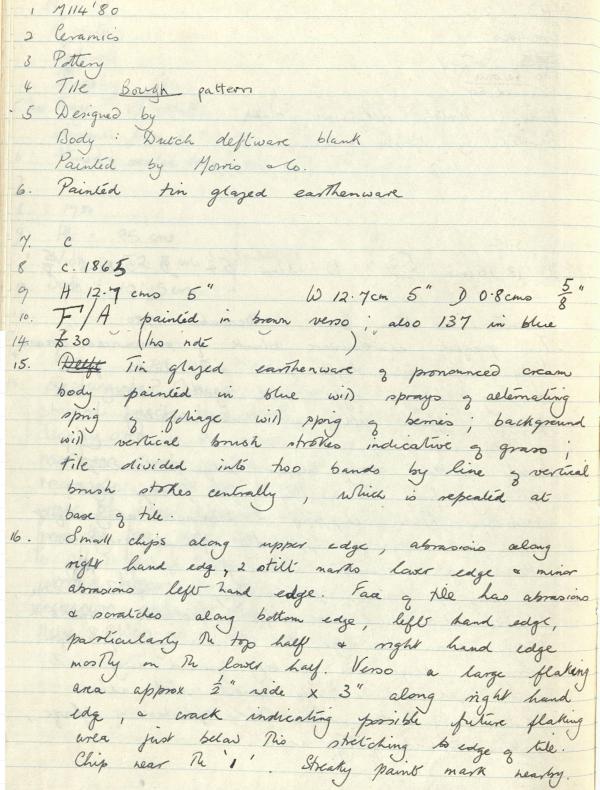 1 M114'80
2 Ceramics
3 Pottery
4 Tile Bough pattern
5 Designed by
Body : Dutch delftware blank
Painted by Morris & Co.
6. Painted tin glazed earthenware
7. C
8 c. 1865
9 H 12.7 cms 5" W 12.7cm 5" D 0.8cms 5/8"
10. F/A painted in brown verso ; also 137 in blue
14. £30 (Ins note )
15. Delft Tin glazed earthenware of pronounced cream
body painted in blue with sprays of alternating
sprig of foliage with sprig of berries ; background
with vertical brush strokes indicative of grass ;
tile divided into two bands by line of vertical
brush stokes centrally , which is repeated at
base of tile.
16. Small chips along upper edge, abrasions along
right hand edg, 2 stilt marks lower edge & minor
abrasions left hand edge. Face of tile has abrasions
& scratches along bottom edge, left hand edge,
particularly the top half & right hand edge
mostly on the lower half. Verso a large flaking
area approx 1/2" wide x 3" along right hand
edg, a crack indicating possible future flaking
area just below this stretching to edge of tile.
Chip near the '1'. Streaky paint mark nearby.